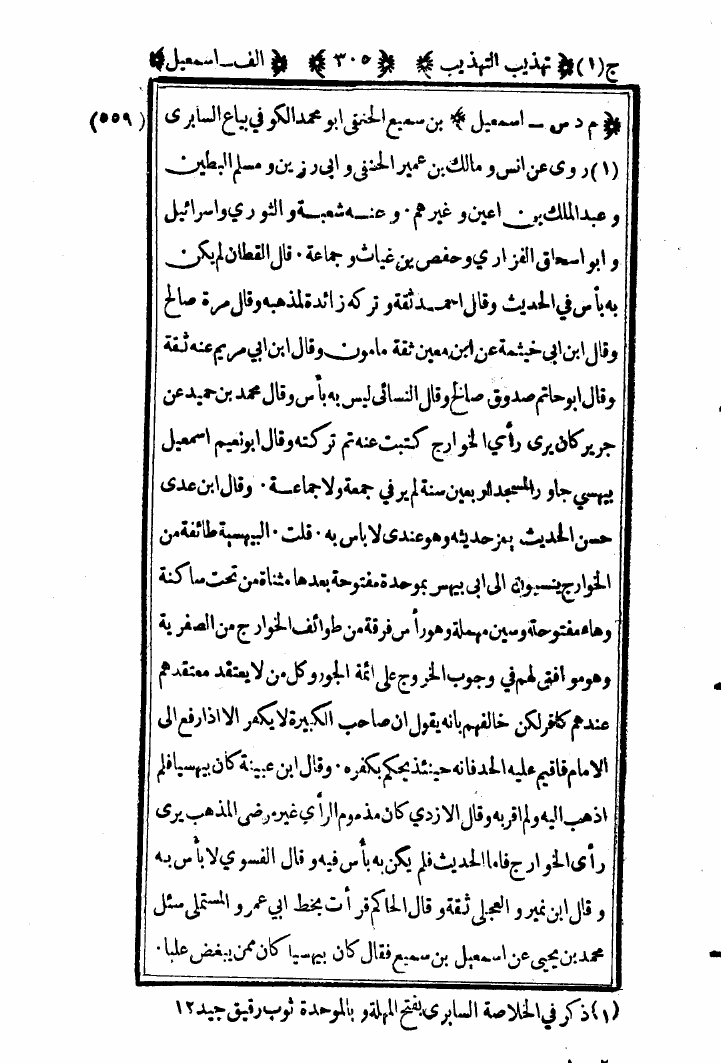 ج(١) ﴿ تهذيب التهذيب ﴾ ﴿ ٣٠٥ ﴾ ﴿ الف ــ اسمعيل ﴾
﴿ م د س ــ اسمعيل ﴾ بن سميع الحنفى ابو محمد الكوفي بياع السابرى (٥٥٩)
(١) روى عن انس و مالك بن عمير الحنفى و ابى رزين و مسلم البطين
و عبد الملك بن اعين و غيرهم . و عنه شعبة و الثوري و اسرائيل
و ابو اسحاق الفزاري و حفص بن غياث و جماعة . قال القطان لم يكن
به بأس في الحديث وقال احمد ثقة و تركه زائدة لمذهبه وقال مرة صالح
وقال ابن ابى خيثمة عن ابن معين ثقة مامون وقال ابن ابي مريم عنه ثقة
وقال ابو حاتم صدوق صالح وقال النسائى ليس به بأس وقال محمد بن حميد عن
جرير كان يرى رأي الخوارج كتبت عنه ثم تركته وقال ابو نعيم اسمعيل
بيهسي جاور المسجد اربعين سنة لم ير في جمعة ولا جماعة . وقال ابن عدى
حسن الحديث يعز حديثه وهو عندى لا باس به . قلت . البيهسية طائفة من
الخوارج ينسبون الى ابى بيهس بموحدة مفتوحة بعدها مثناة من تحت ساكنة
وهاء مفتوحة وسين مهملة وهو رأس فرقة من طوائف الخوارج من الصفرية
وهو موافق لهم في وجوب الخروج على ائمة الجور وكل من لا يعتقد معتقدهم
عندهم كافر لكن خالفهم بانه يقول ان صاحب الكبيرة لا يكفر الا اذا رفع الى
الامام فاقيم عليه الحد فانه حينئذ يحكم بكفره . وقال ابن عيينة كان بيهسيا فلم
اذهب اليه ولم اقربه وقال الازدي كان مذموم الرأي غير مرضى المذهب يرى
رأى الخوارج فاما الحديث فلم يكن به بأس فيه و قال الفسوي لا بأس به
و قال ابن نمير و العجلى ثقة و قال الحاكم قرأت بخط ابي عمرو المستملى سئل
محمد بن يحيى عن اسمعيل بن سميع فقال كان بيهسيا كان ممن يبغض عليا .
(١) ذكر في الخلاصة السابرى بفتح المهملة و بالموحدة ثوب رقيق جيد ١٢